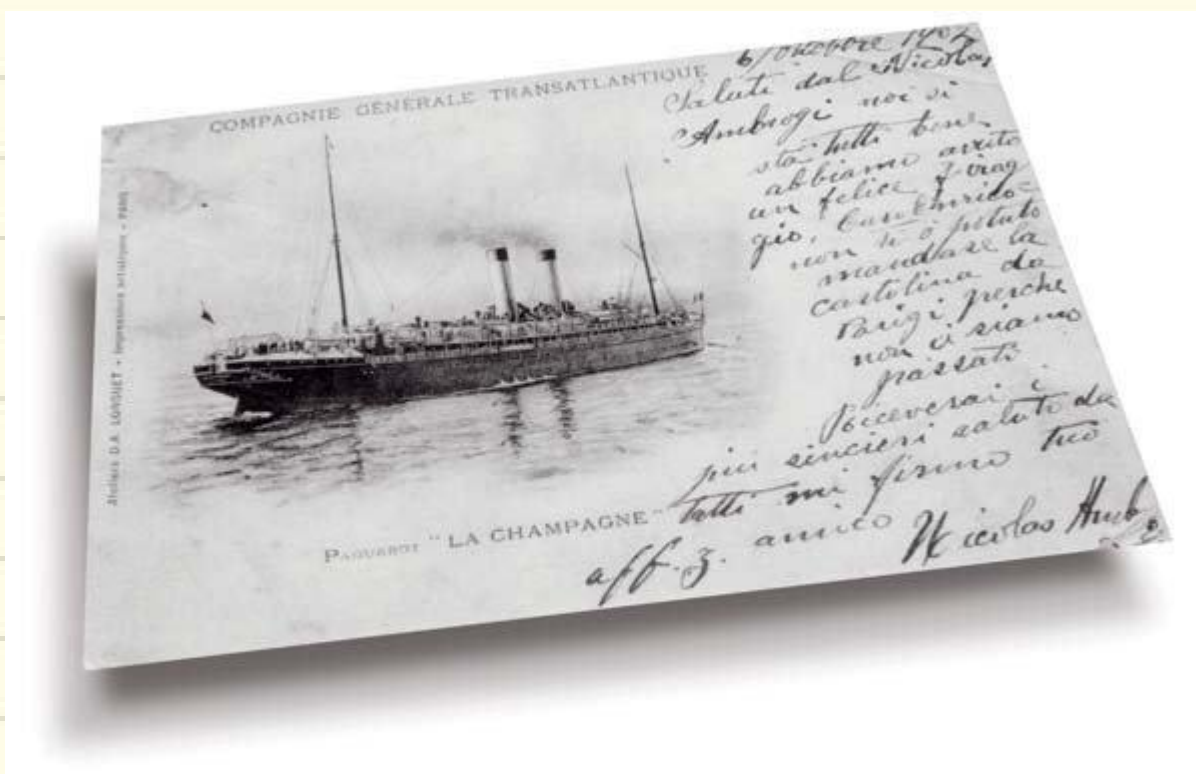 COMPAGNIE GÉNÉRALE TRANSATLANTIQUE
Ateliers D.A. LONGUET - Impressions artistiques - PARIS
PAQUEBOT "LA CHAMPAGNE"
6/Ottobre
Saluti dal Nicolas
Ambrogi noi si
sta tutti bene
abbiamo avuto
un felice viag
gio. Caro Enrico
non ti o potuto
mandare la
cartolina da
Parigi perche
non ci siamo
passati.
Riceverai i
più sincieri saluti da
tutti mi firmo tuo
aff. amico
Nicolas Amb